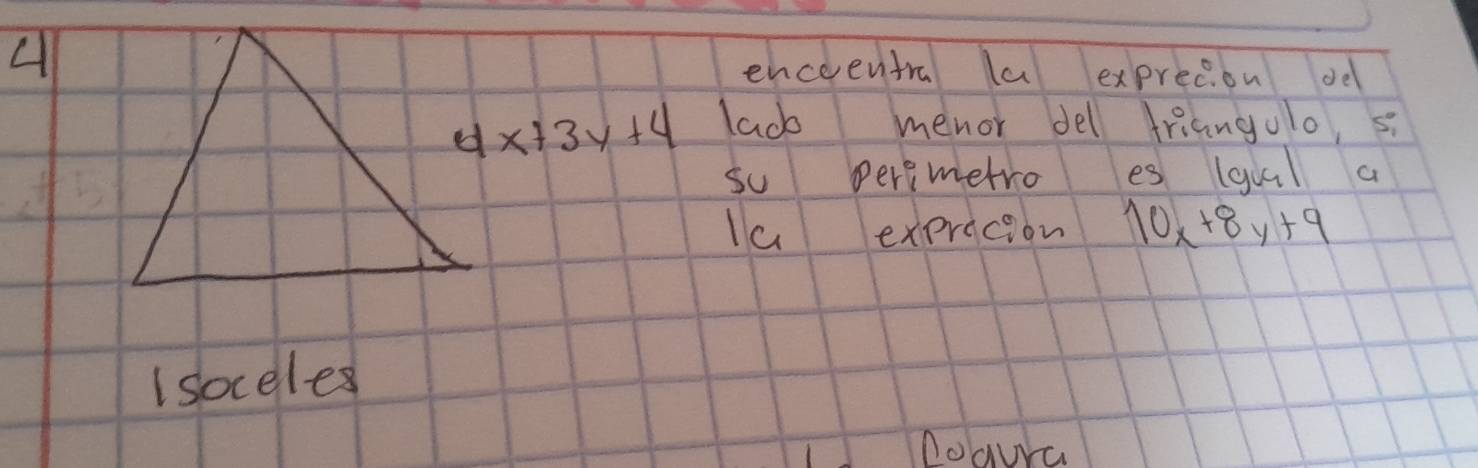 4
encuentra la exprecion del
4x+3y+4 lado menor del triangulo, si
su perimetro es igual a
la exprecion 10x+8y+9
Isoceles